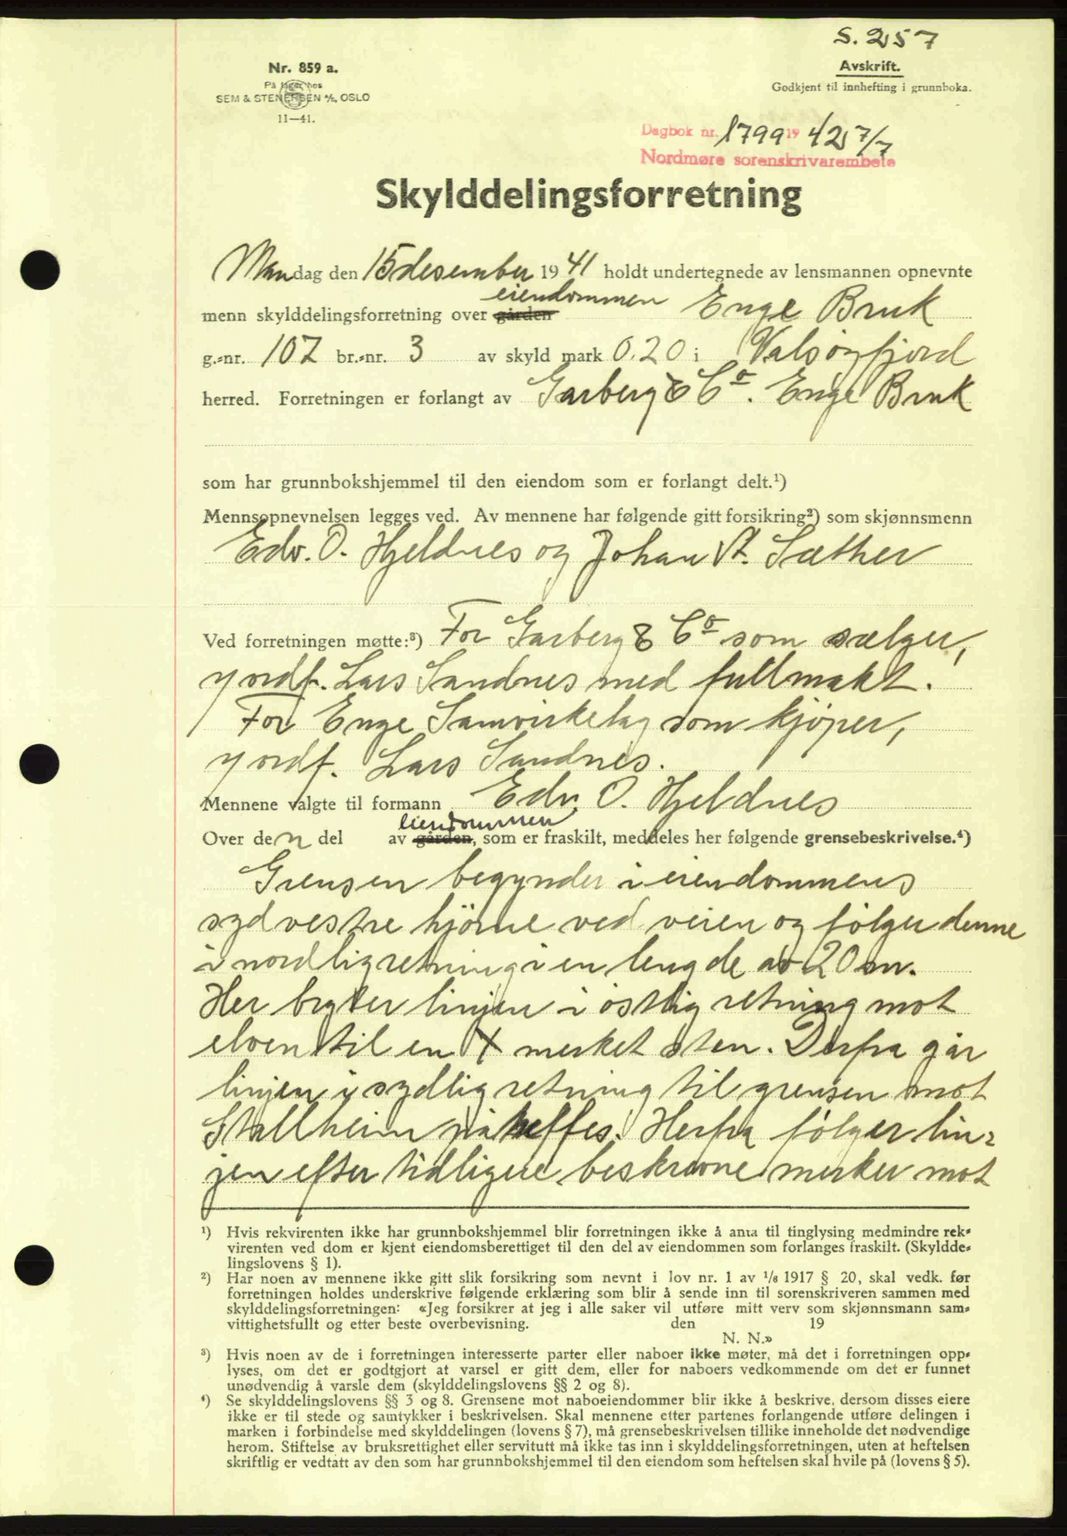 S. 257
Nr. 859 a.
På lager hos
SEM & STENERSEN A/S, OSLO
11—41.
Avskrift.
Godkjent til innhefting i grunnboka.
Dagbok nr. 1799 19 42 7/7
Nordmøre sorenskrivarembete
Skylddelingsforretning
Mandag den 15 desember 1941 holdt undertegnede av lensmannen opnevnte
eiendommen
menn skylddelingsforretning over gården Enge Bruk
g.-nr. 107 br.-nr. 3 av skyld mark 0.20 i Valsøyfjord
herred. Forretningen er forlangt av Garberg & Co. Enge Bruk
som har grunnbokshjemmel til den eiendom som er forlangt delt.¹)
Mennsopnevnelsen legges ved. Av mennene har følgende gitt forsikring²) som skjønnsmenn
Edv. O. Hjeldnes og Johan A. Sæther
Ved forretningen møtte:³) For Garberg & Co som sælger,
Lars Sandnes med fullmakt.
For Enge Samvirkelag som kjøper,
Lars Sandnes.
Mennene valgte til formann Edv. O. Hjeldnes
eiendommen
Over den del av gården, som er fraskilt, meddeles her følgende grensebeskrivelse.⁴)
Grensen begynder i eiendommens
sydvestre hjørne ved veien og følger denne
i nordlig retning i en lengde av 20 m.
Her bryter linjen i østlig retning mot
elven til en X merket sten. Derfra går
linjen i sydlig retning til grensen mot
Stallheim påtreffes. Herfra følger lin-
jen efter tidligere beskrevne merker mot
¹) Hvis rekvirenten ikke har grunnbokshjemmel blir forretningen ikke å anta til tinglysing medmindre rek-
virenten ved dom er kjent eiendomsberettiget til den del av eiendommen som forlanges fraskilt. (Skyldde-
lingslovens § 1).
²) Har noen av mennene ikke gitt slik forsikring som nevnt i lov nr. 1 av 1/8 1917 § 20, skal vedk. før
forretningen holdes underskrive følgende erklæring som blir å sende inn til sorenskriveren sammen med
skylddelingsforretningen: «Jeg forsikrer at jeg i alle saker vil utføre mitt verv som skjønnsmann sam-
vittighetsfullt og etter beste overbevisning. den 19
N. N.»
³) Hvis noen av de i forretningen interesserte parter eller naboer ikke møter, må det i forretningen opp-
lyses, om det er godtgjort at varsel er gitt dem, eller for naboers vedkommende om det er funnet
unødvendig å varsle dem (skylddelingslovens §§ 2 og 8).
⁴) Se skylddelingslovens §§ 3 og 8. Grensene mot naboeiendommer blir ikke å beskrive, dersom disses eiere
ikke er til stede og samtykker i beskrivelsen. Skal mennene etter partenes forlangende utføre delingen i
marken i forbindelse med skylddelingen (lovens § 7), må grensebeskrivelsen tillike inneholde det nødvendige
herom. Stiftelse av bruksrettighet eller servitutt må ikke tas inn i skylddelingsforretningen, uten at heftelsen
skriftlig er vedtatt av den som har grunnbokshjemmel til den eiendom som heftelsen skal hvile på (lovens § 5).